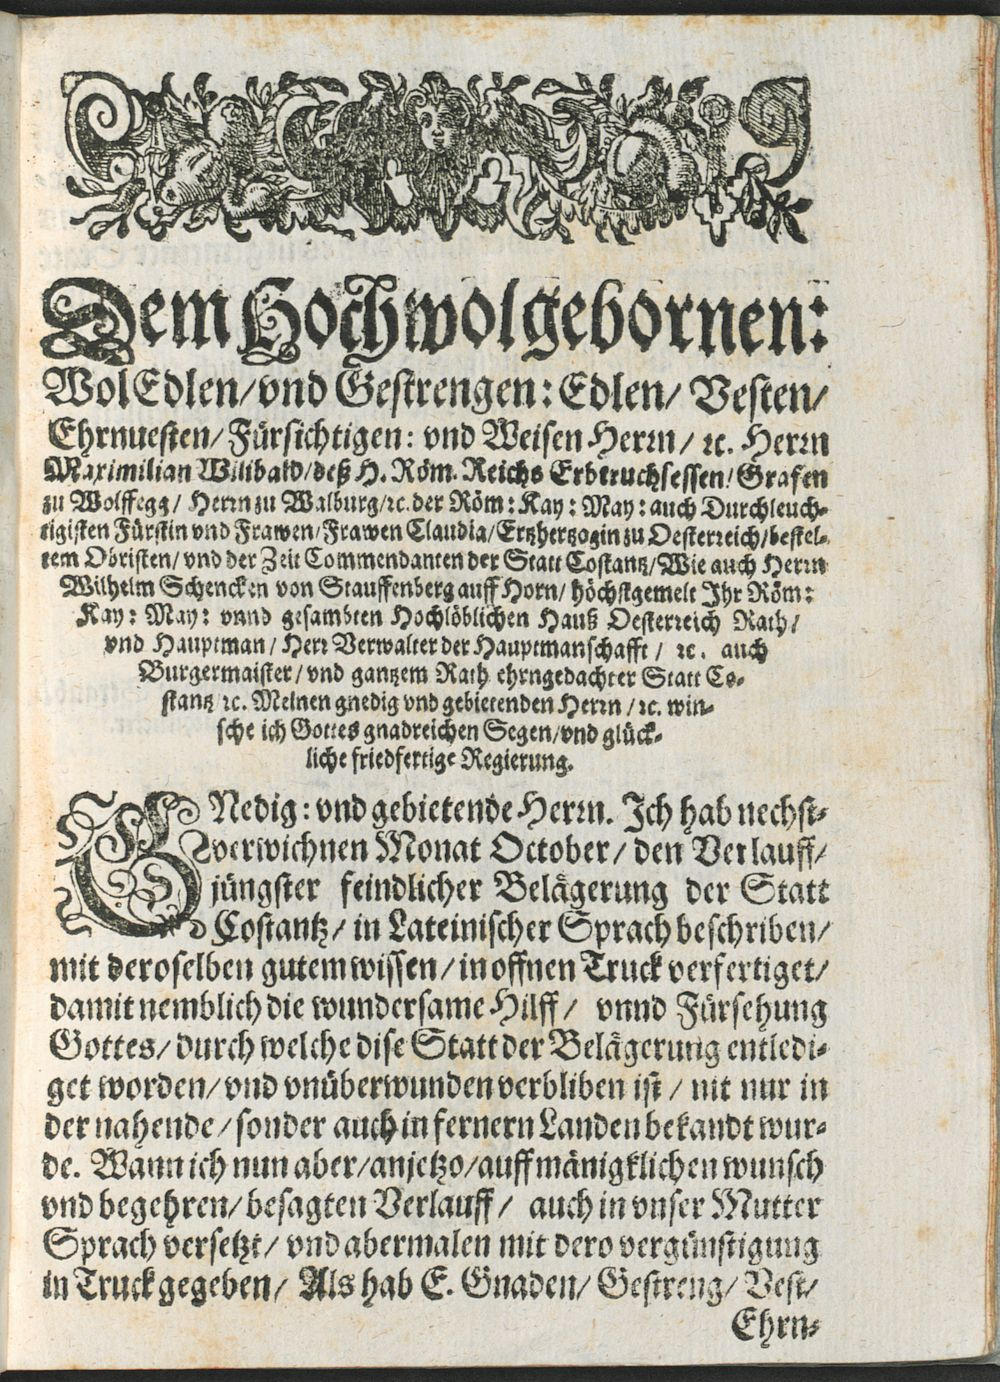 Dem Hochwolgebornen:
WolEdlen/ vnd Gestrengen: Edlen/ Vesten/
Ehrnuesten/ Fürsichtigen: vnd Weisen Herrn/ ꝛc. Herrn
Maximilian Wilibald/ deß H. Röm. Reichs Erbtruchsessen/ Grafen
zu Wolffegg/ Herrn zu Walburg/ ꝛc. der Röm: Kay: May: auch Durchleuch-
tigisten Fürstin vnd Frawen/ Frawen Claudia/ Ertzhertzogin zu Oesterreich/ bestel-
tem Obristen/ vnd der Zeit Commendanten der Statt Costantz/ Wie auch Herrn
Wilhelm Schencken von Stauffenberg auff Horn/ höchstgemelt Ihr Röm:
Kay: May: vnnd gesambten Hochlöblichen Hauß Oesterreich Rath/
vnd Hauptman/ Herr Verwalter der Hauptmanschafft/ ꝛc. auch
Burgermaister/ vnd gantzem Rath ehrngedachter Statt Co-
stantz ꝛc. Meinen gnedig vnd gebietenden Herrn/ ꝛc. win-
sche ich Gottes gnadreichen Segen/ vnd glück-
liche friedfertige Regierung.
GNedig: vnd gebietende Herrn. Ich hab nechst-
verwichnen Monat October/ den Verlauff/
jüngster feindlicher Belägerung der Statt
Costantz/ in Lateinischer Sprach beschriben/
mit deroselben gutem wissen/ in offnen Truck verfertiget/
damit nemblich die wundersame Hilff/ vnnd Fürsehung
Gottes/ durch welche dise Statt der Belägerung entledi-
get worden/ vnd vnüberwunden verbliben ist/ nit nur in
der nahende/ sonder auch in fernern Landen bekandt wur-
de. Wann ich nun aber/ anjetzo/ auff mänigklichen wunsch
vnd begehren/ besagten Verlauff/ auch in vnser Mutter
Sprach versetzt/ vnd abermalen mit dero vergünstigung
in Truck gegeben/ Als hab E. Gnaden/ Gestreng/ Vest/
Ehrn-